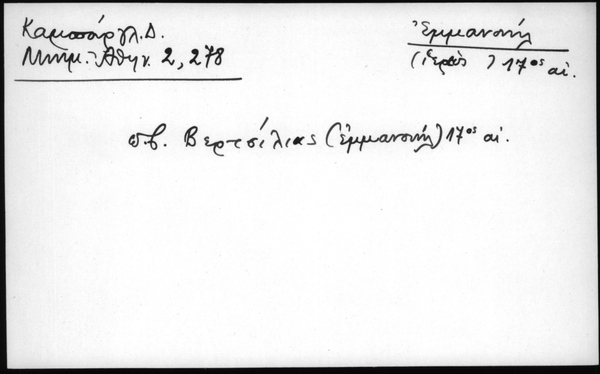 Καμπούργλ. Δ.
Μνημ. Ἀθην. 2, 278
Ἐμμανουήλ
(Ἱερεὺς ) 17ος αἰ.
π.β. Βερτσέλιας (Ἐμμανουήλ) 17ος αἰ.